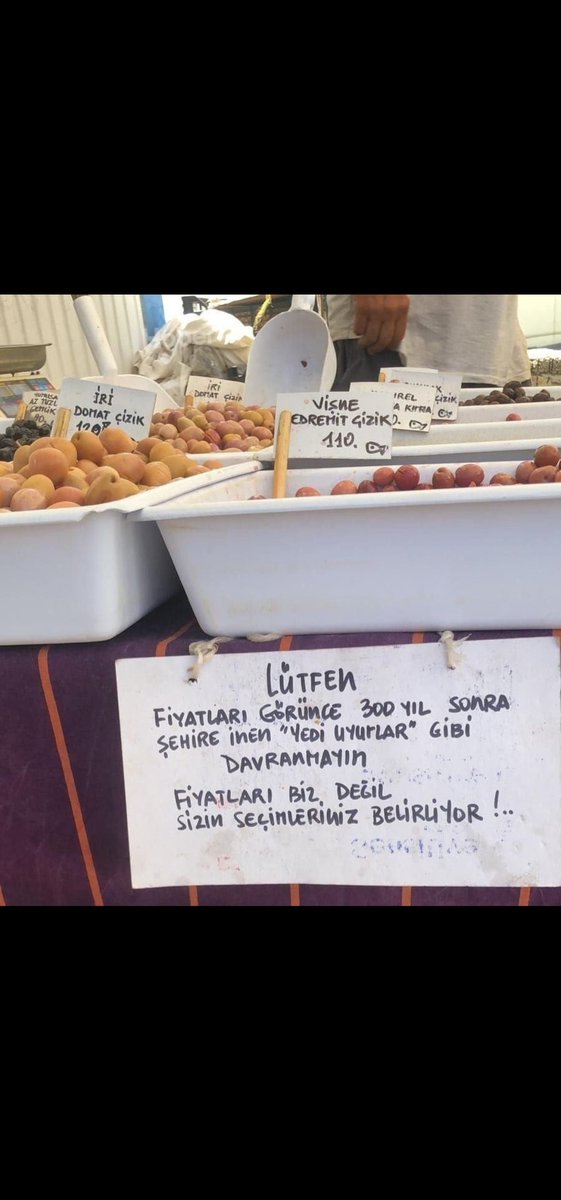 İRİ
DOMAT ÇİZİK
İRİ
DOMAT ÇİZİK
AZ TUZLU
GEMLİK
90.
VİŞNE
EDREMİT ÇİZİK
110.
KIRMA
LÜTFEN
FİYATLARI GÖRÜNCE 300 YIL SONRA
ŞEHİRE İNEN "YEDİ UYURLAR" GİBİ
DAVRANMAYIN
FİYATLARI BİZ DEĞİL
SİZİN SEÇİMLERİNİZ BELİRLİYOR !..